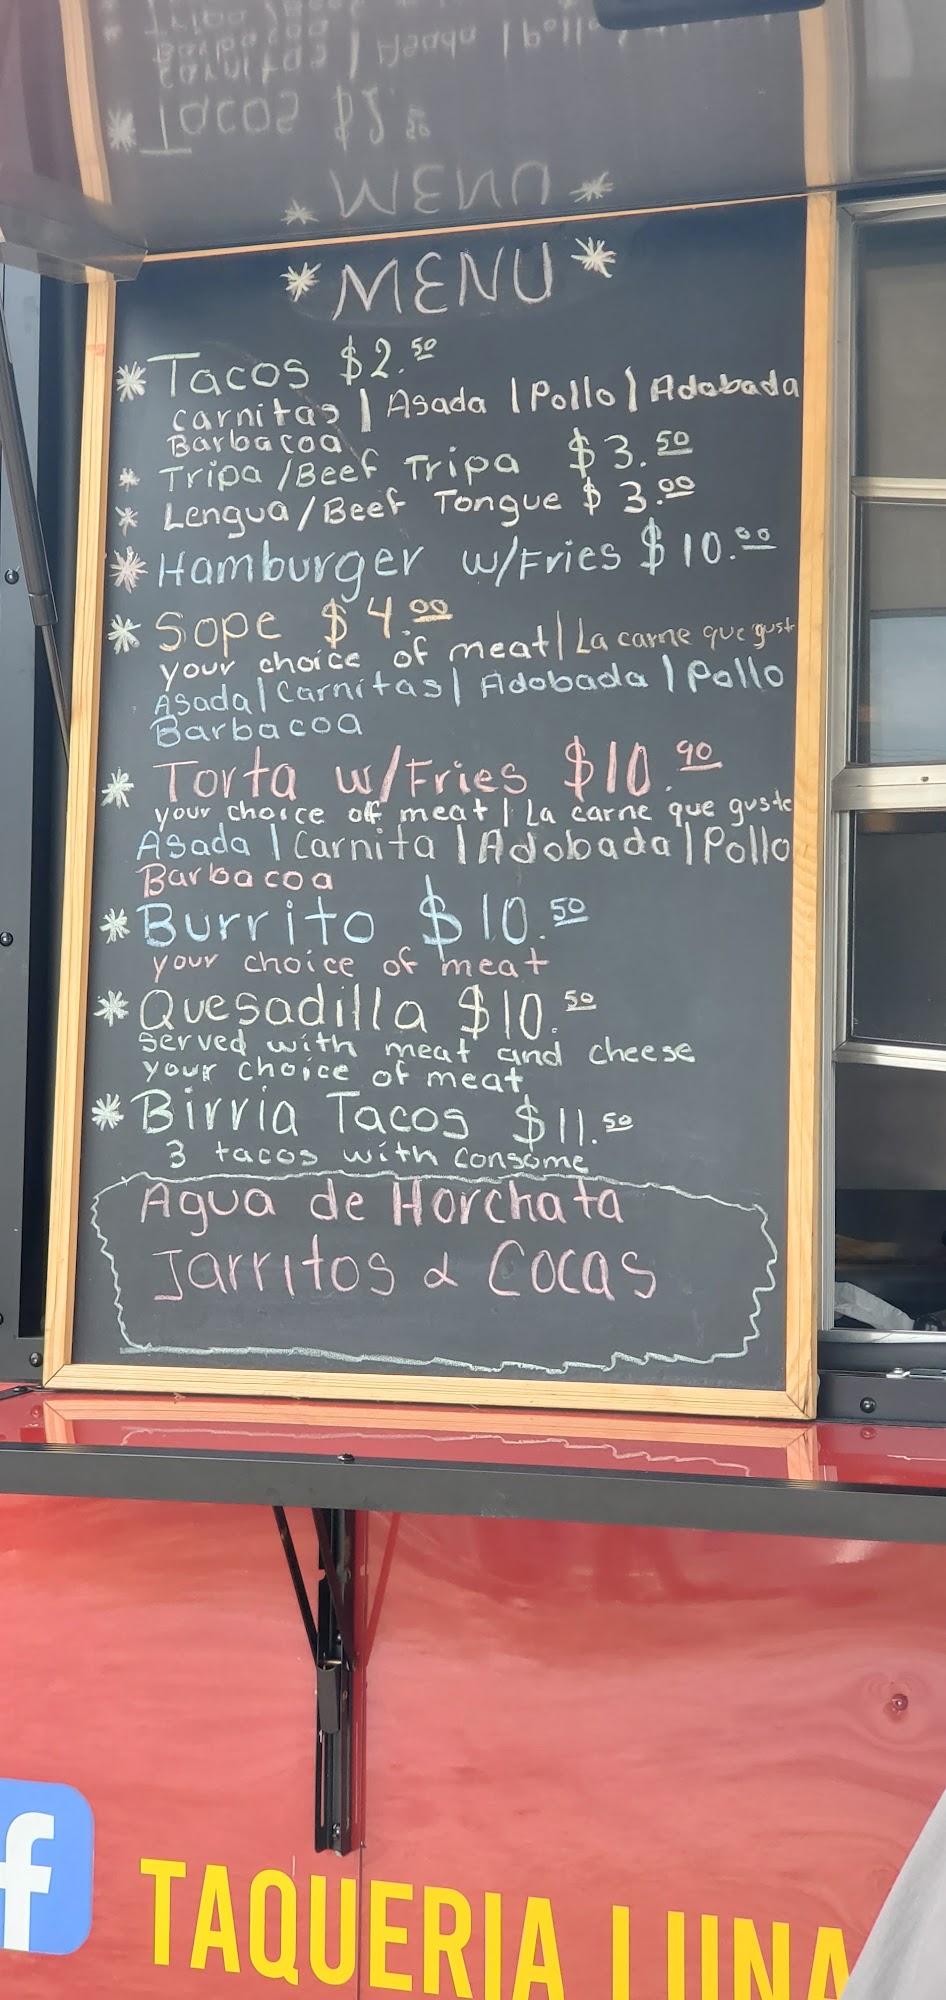 * MENU *
* Tacos $2.50
carnitas | Asada | Pollo | Adobada
Barbacoa
* Tripa/Beef Tripa $3.50
* Lengua/Beef Tongue $3.00
* Hamburger w/Fries $10.00
* Sope $4.00
your choice of meat | La carne que guste
Asada | Carnitas | Adobada | Pollo
Barbacoa
* Torta w/Fries $10.90
your choice of meat | La carne que guste
Asada | Carnita | Adobada | Pollo
Barbacoa
* Burrito $10.50
your choice of meat
* Quesadilla $10.50
served with meat and cheese
your choice of meat
* Birria Tacos $11.50
3 tacos with consome
Agua de Horchata
Jarritos & Cocas
f
TAQUERIA LUNA